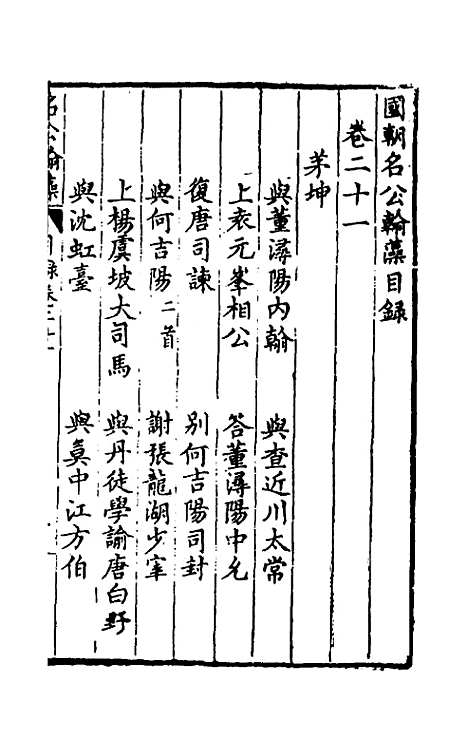 國朝名公翰藻目錄
卷二十一
茅坤
與董潯陽內翰
與查近川太常
上袁元峯相公
答董潯陽中允
復唐司諫
別何吉陽司封
與何吉陽二首
謝張龍湖少宰
上楊虞坡大司馬
與丹徒學諭唐白野
與沈虹臺
與莫中江方伯
名公翰藻 目錄卷二十一